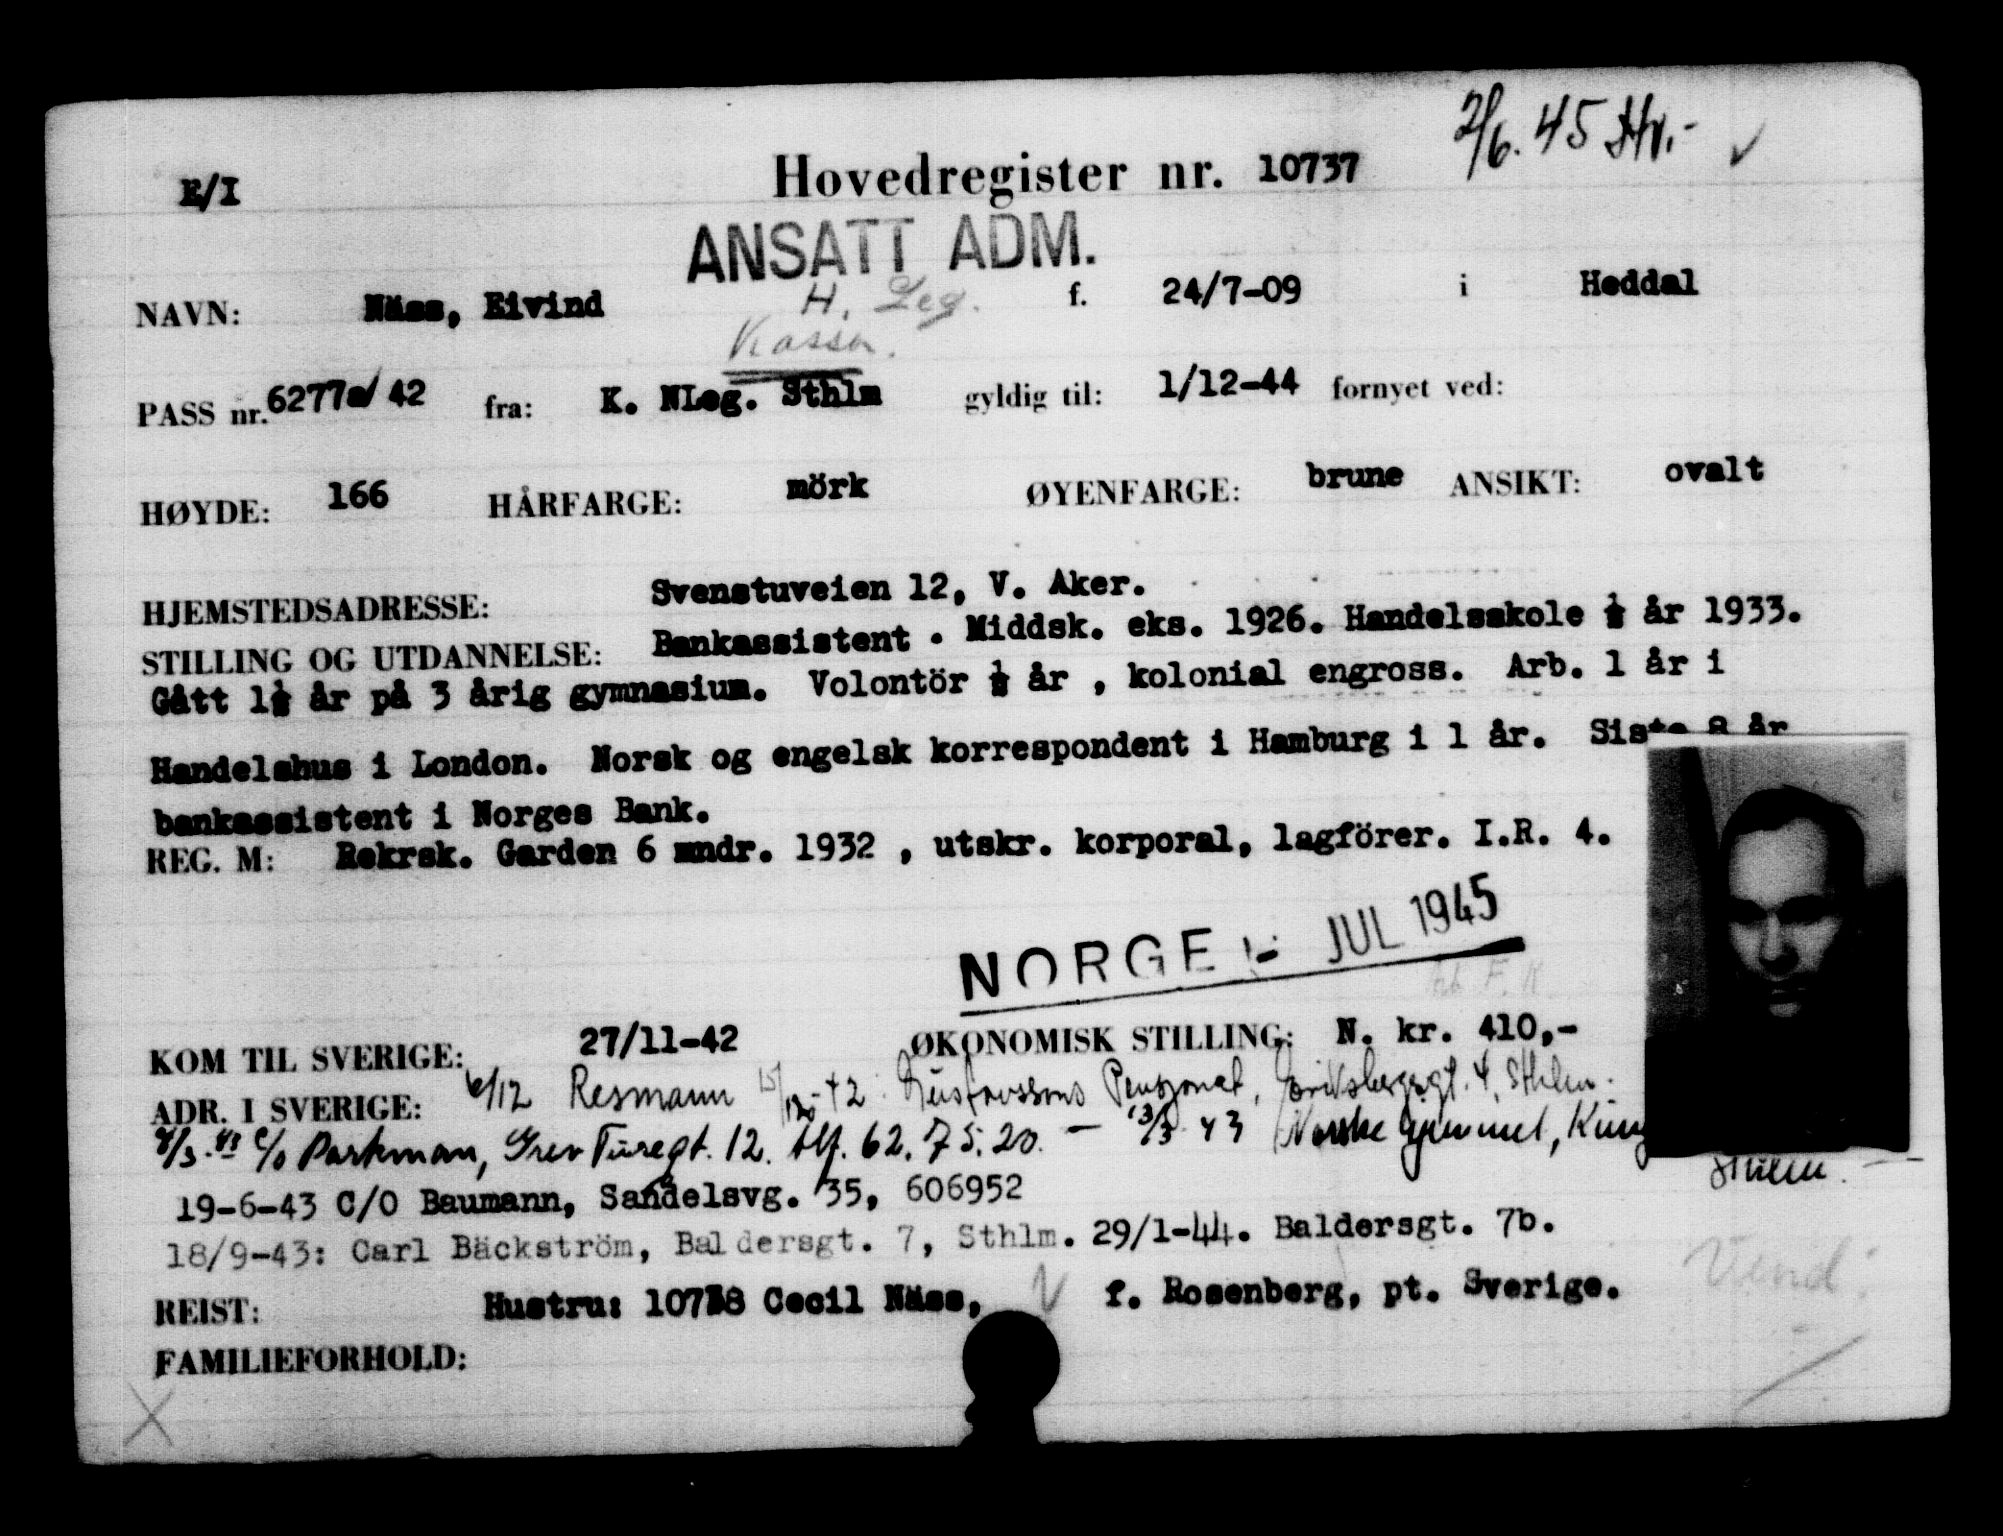 2/6. 45 Hv.-
E/I Hovedregister nr. 10737
ANSATT ADM.
NAVN: Näss, Eivind H. Leg. f. 24/7-09 i Heddal
Kassa.
PASS nr. 6277a/42 fra: K. NLeg. Sthlm gyldig til: 1/12-44 fornyet ved:
HØYDE: 166 HÅRFARGE: mörk ØYENFARGE: brune ANSIKT: ovalt
HJEMSTEDSADRESSE: Svenstuveien 12, V. Aker.
STILLING OG UTDANNELSE: Bankassistent. Middsk. eks. 1926. Handelsskole ½ år 1933.
Gått 1½ år på 3 årig gymnasium. Volontör ½ år, kolonial engross. Arb. 1 år i
Handelshus i London. Norsk og engelsk korrespondent i Hamburg i 1 år. Siste 8 år
bankassistent i Norges Bank.
REG. M: Rekrsk. Garden 6 mndr. 1932, utskr. korporal, lagförer. I.R. 4.
NORGE JUL 1945
KOM TIL SVERIGE: 27/11-42 ØKONOMISK STILLING: N. kr. 410,-
ADR. I SVERIGE: 6/12 Resmann 15/12-42. Gustavssons Pensjonat, Eriksbergsgt. 4, Sthlm.
4/3.43 c/o Parkman, Grev Turegt. 12. tlf. 62.75.20. - 13/3 43 Norske hjemmet, Kung
Sthlm. -
19-6-43 C/O Baumann, Sandelsvg. 35, 606952
18/9-43: Carl Bäckström, Baldersgt. 7, Sthlm. 29/1-44. Baldersgt. 7b.
Vend!
REIST: Hustru: 10738 Cecil Näss, f. Rosenberg, pt. Sverige.
FAMILIEFORHOLD: